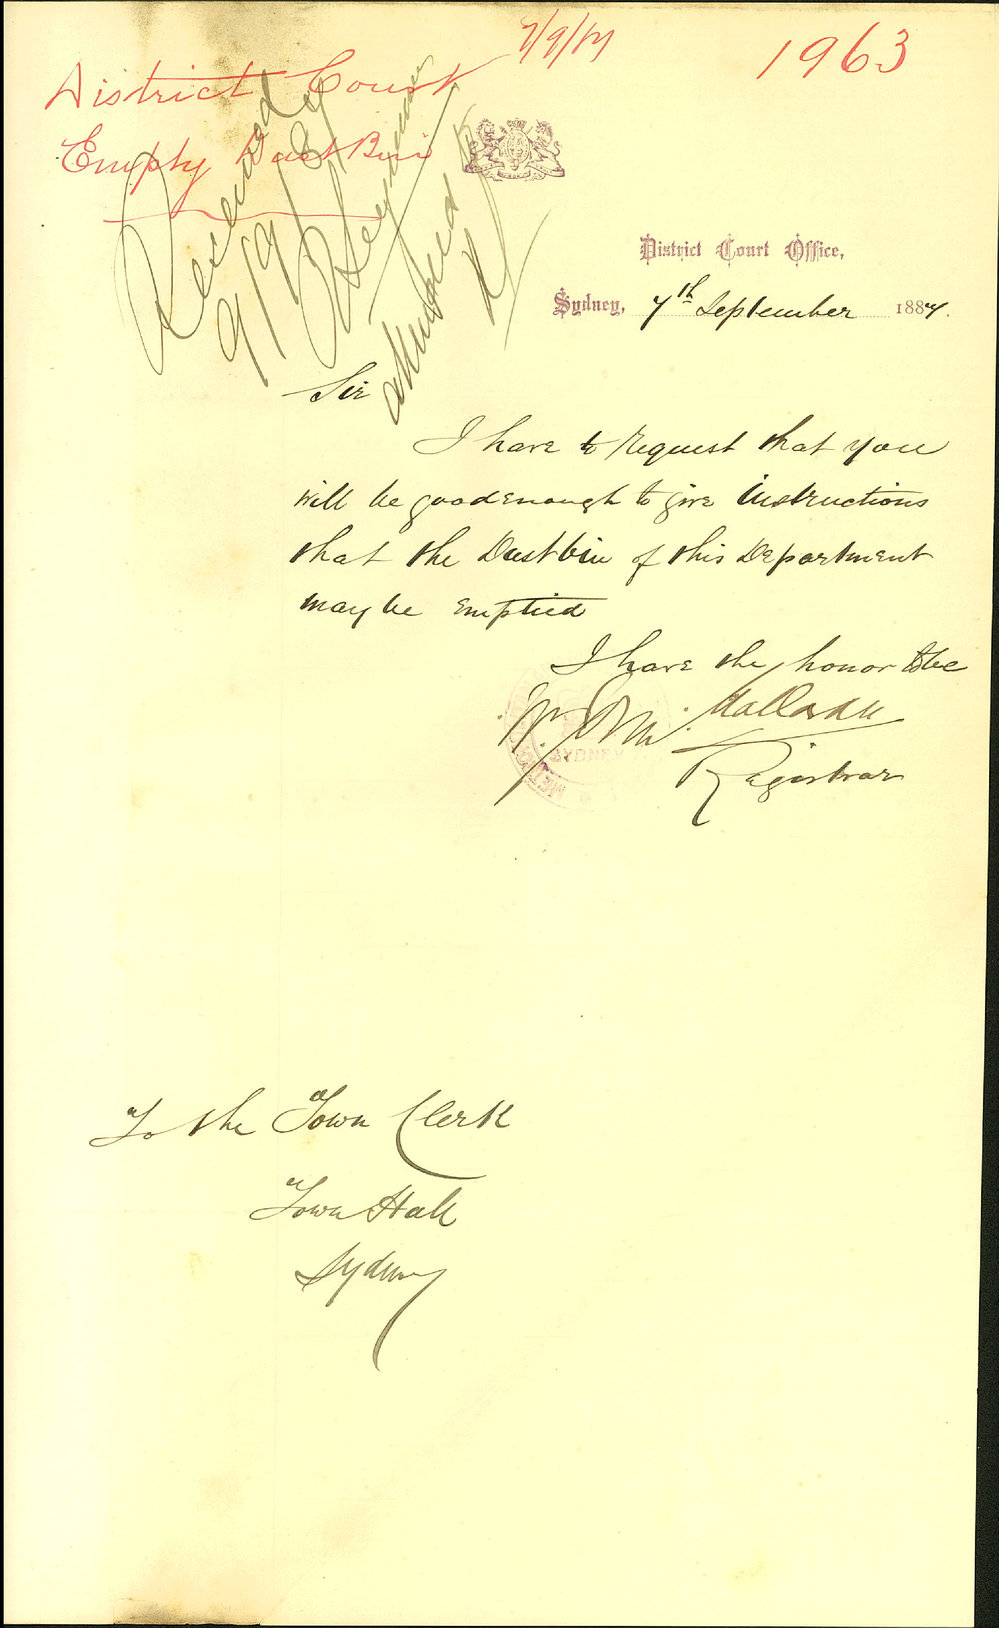 7/9/87
1963
District Court
Empty Dust Bin
Received
9/9/87
District Court Office,
Sydney, 7th September 1887.
Sir
I have to request that you
will be good enough to give instructions
that the Dustbin of this Department
may be emptied
I have the honor to be
Registrar
SYDNEY
To the Town Clerk
Town Hall
Sydney